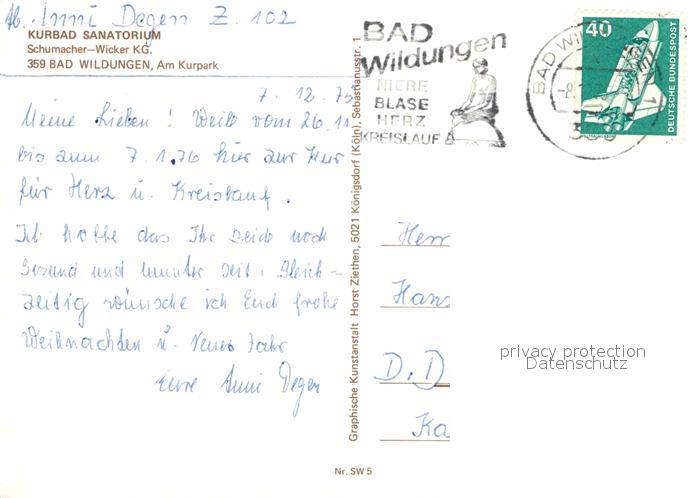 Ab. Anni Degen Z. 102
KURBAD SANATORIUM
Schumacher–Wicker KG.
359 BAD WILDUNGEN, Am Kurpark
7. 12. 75
Meine Lieben! Weile vom 26.11
bis zum 7.1.76 hier zur Kur
für Herz u. Kreislauf.
Ich hoffe das Ihr beide noch
Gesund und munter seit. Gleich-
zeitig wünsche ich Euch frohe
Weihnachten u. Neues Jahr
Eure Anni Degen
Graphische Kunstanstalt Horst Ziethen, 5021 Königsdorf (Köln), Sebastianusstr. 1
Nr. SW 5
BAD
Wildungen
NIERE
BLASE
HERZ
KREISLAUF
BAD WI
-8.
1
40
DEUTSCHE BUNDESPOST
Herr
Hans
D. D
Ka
privacy protection
Datenschutz